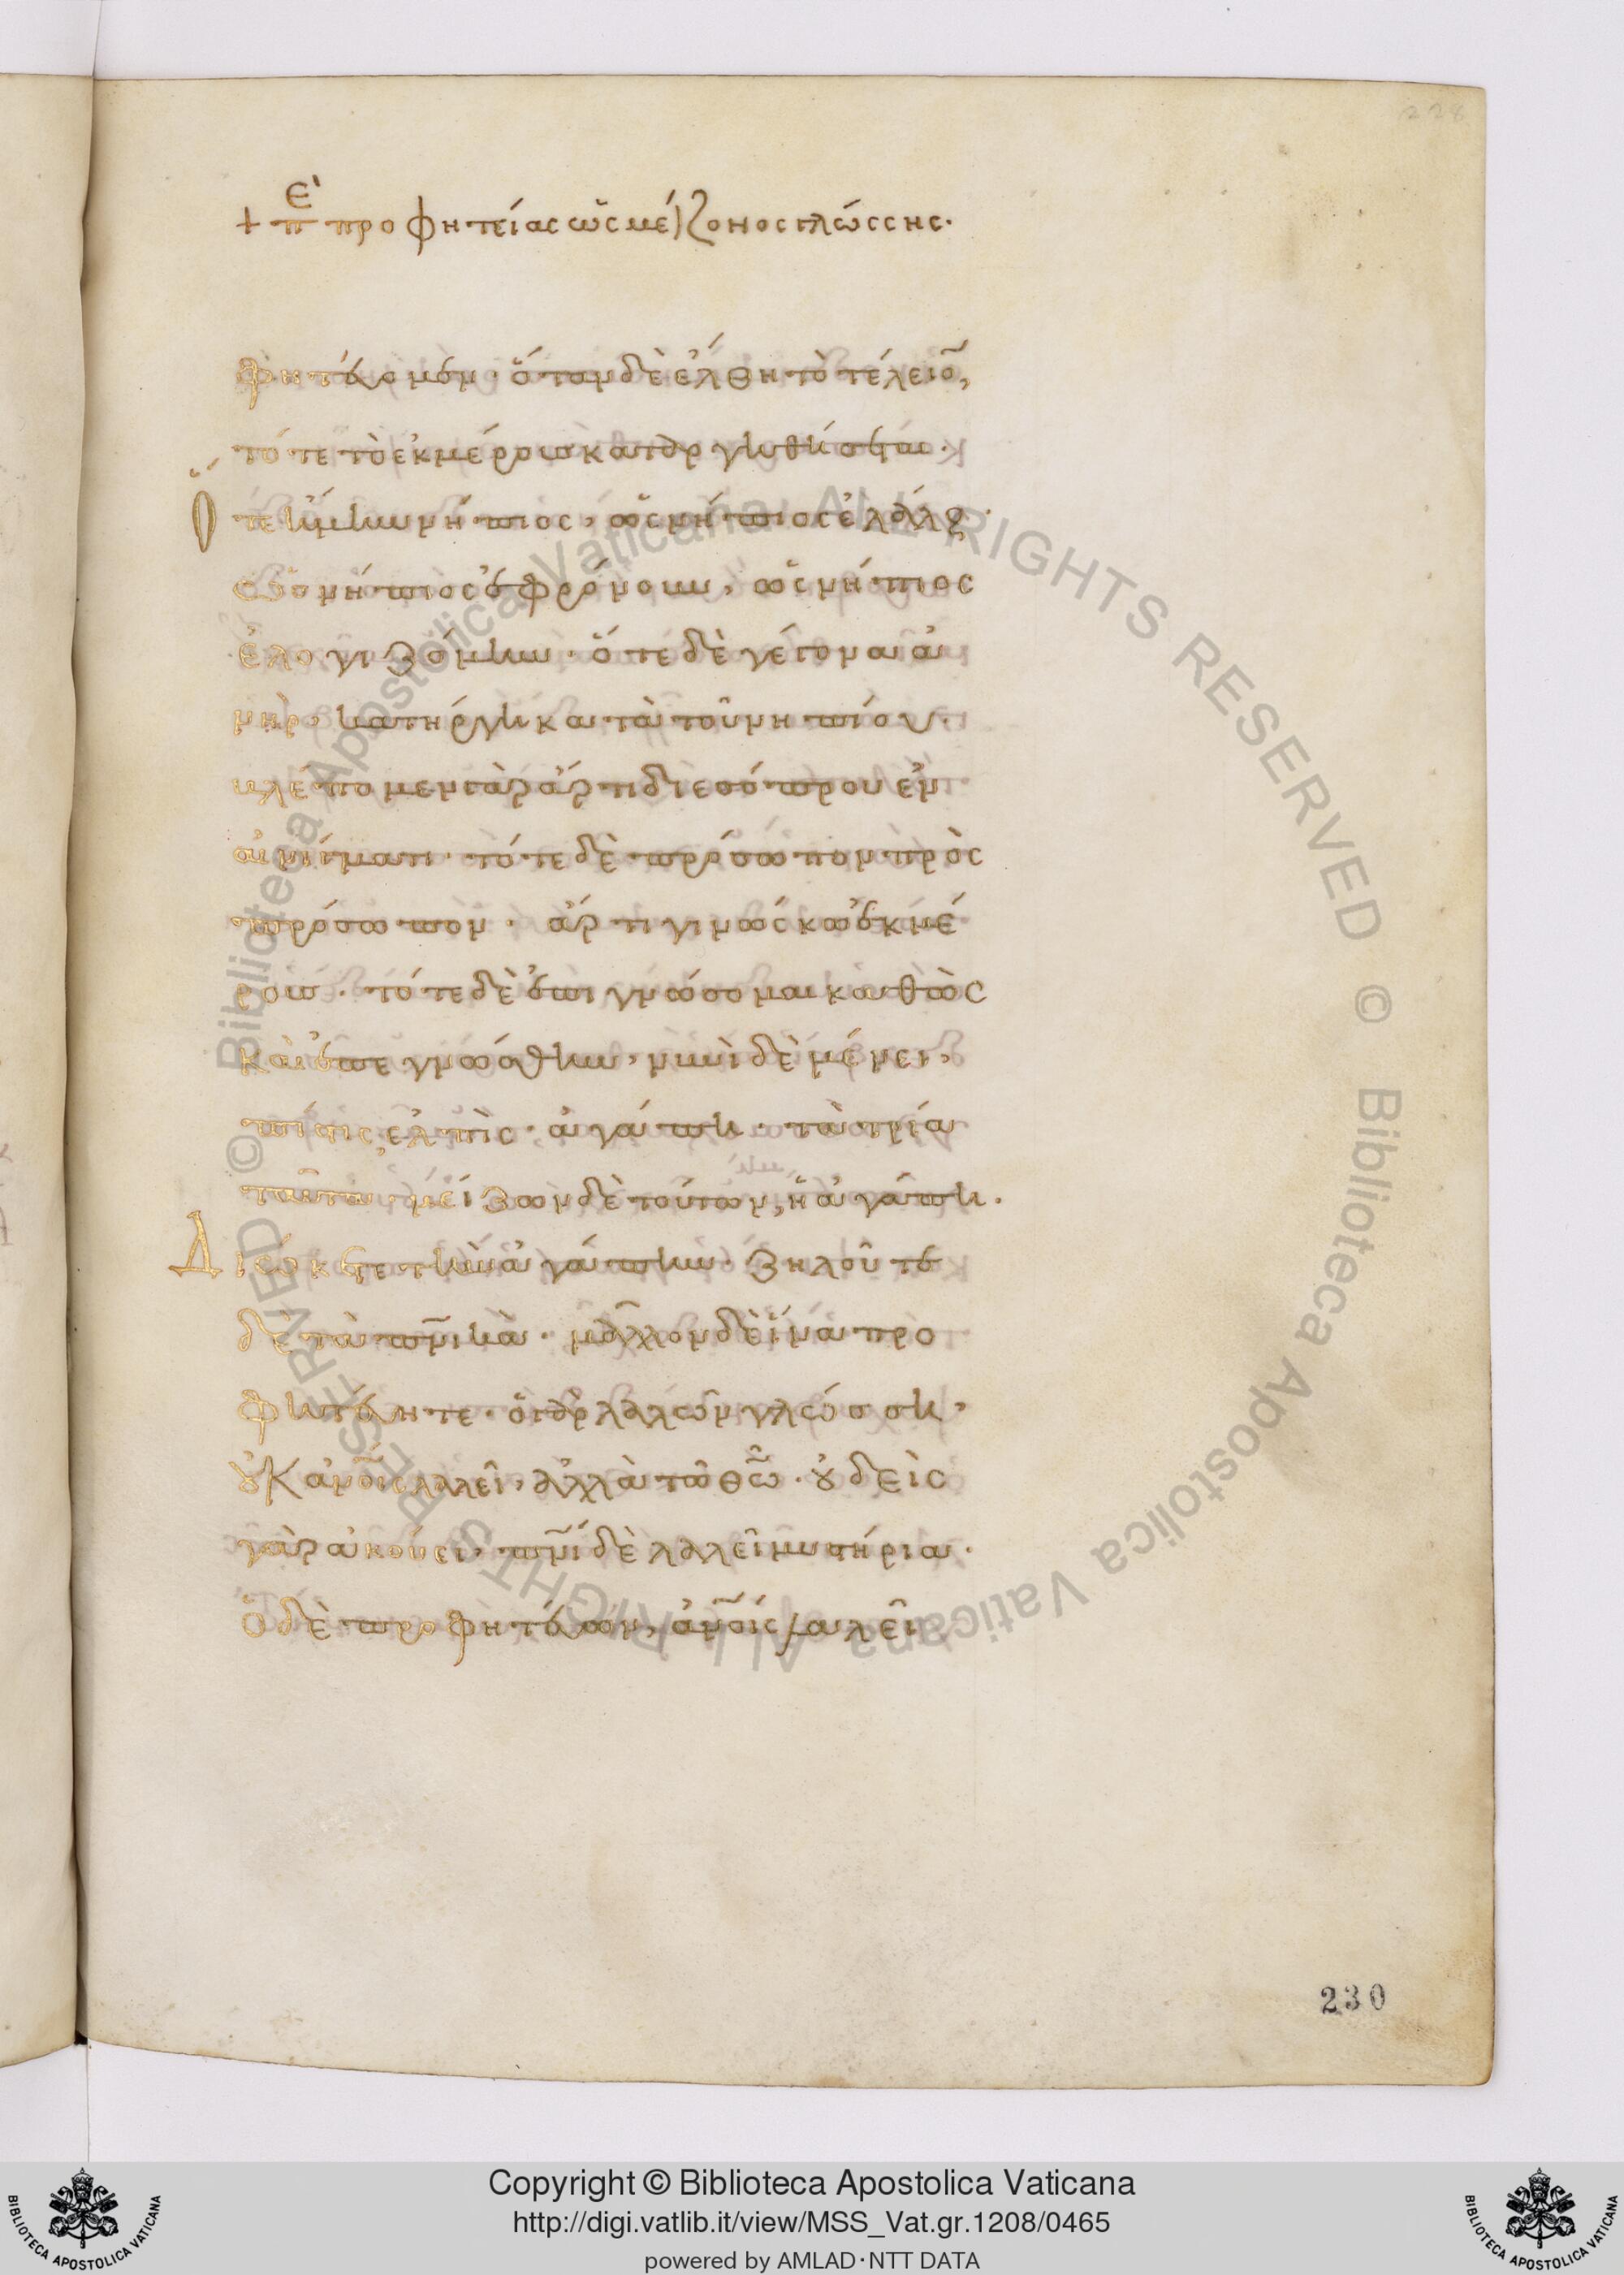 228
+ Ὲ π προφητείας ὡς μείζονος γλώσσης.
φητεύομεν· ὅταν δὲ ἔλθη τὸ τέλειο̄,
τότε τὸ ἐκ μέρους καταργηθήσεται·
Ὅτε ἤμην νήπιος, ὡς νήπιος ἐλάλουν·
ὡς νήπιος ἐφρόνουν, ὡς νήπιος
ἐλογιζόμην· ὅτε δὲ γέγονα ἀ
νήρ, κατήργηκα τὰ τοῦ νηπίου·
βλέπομεν γὰρ ἄρτι δι ἐσόπτρου ἐν
αἰνίγματι· τότε δὲ πρόσωπον πρὸς
πρόσωπον· ἄρτι γινώσκω ἐκ μέ
ρους· τότε δὲ ἐπιγνώσομαι καθὼς
καὶ ἐπεγνώσθην, νυνὶ δὲ μένει,
πίστις, ἐλπὶς· ἀγάπη· τὰ τρία
ταῦτα· μείζων δὲ τούτων, ἡ ἀγάπη.
Διώκετε τὴν ἀγάπην· ζηλοῦτε
δὲ τὰ πν̄ικὰ· μᾶλλον δὲ ἵνα προ
φητεύητε· ὁ γὰρ λαλῶν γλώσση,
οὐκ ἀν̄οις λαλεῖ, ἀλλὰ τῶ θ̄ω· οὐδεὶς
γὰρ ἀκούει, πν̄ι δὲ λαλεῖ μυστήρια·
ὁ δὲ προφητεύων, ἀν̄οις λαλεῖ
230
© Biblioteca Apostolica Vaticana ALL RIGHTS RESERVED © Biblioteca Apostolica Vaticana ALL RIGHTS RESERVED
BIBLIOTECA APOSTOLICA VATICANA
Copyright © Biblioteca Apostolica Vaticana
http://digi.vatlib.it/view/MSS_Vat.gr.1208/0465
powered by AMLAD·NTT DATA
BIBLIOTECA APOSTOLICA VATICANA